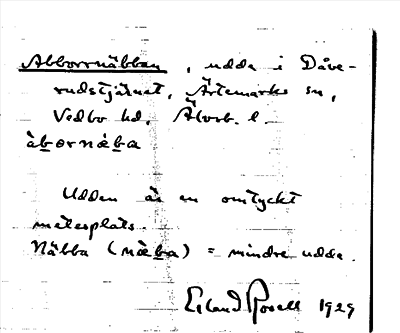 Abborrnäbban, udde i Dåve-
rudstjärnet, Ärtemarks sn,
Vedbo hd, Älvsb. l.
àbornæ̀ba
Udden är en omtyckt
metesplats.
Näbba (næ̀ba) = mindre udde.
Erland Rosell 1929